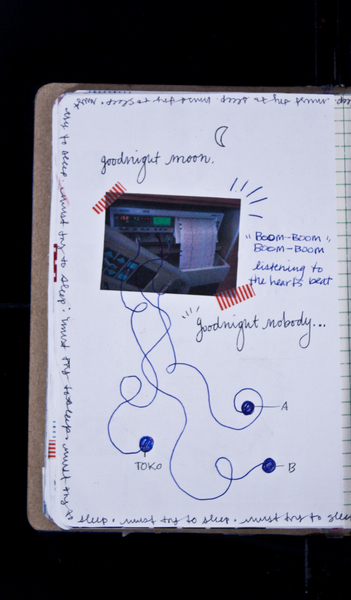 must try to sleep. must try to sleep
goodnight moon.
"BOOM-BOOM",
BOOM-BOOM
listening to
the hearts beat
goodnight nobody...
A
B
TOKO
try to sleep. must try to sleep. must try to sleep. must try to
sleep. must try to sleep. must try to sleep